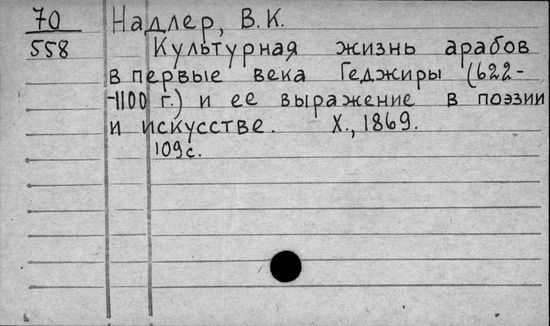 70 Надлер, В.К.
558 Культурная жизнь арабов
в первые века Геджиры (622-
-1100 г.) и ее выражение в поэзии
и искусстве. Х., 1869.
109с.